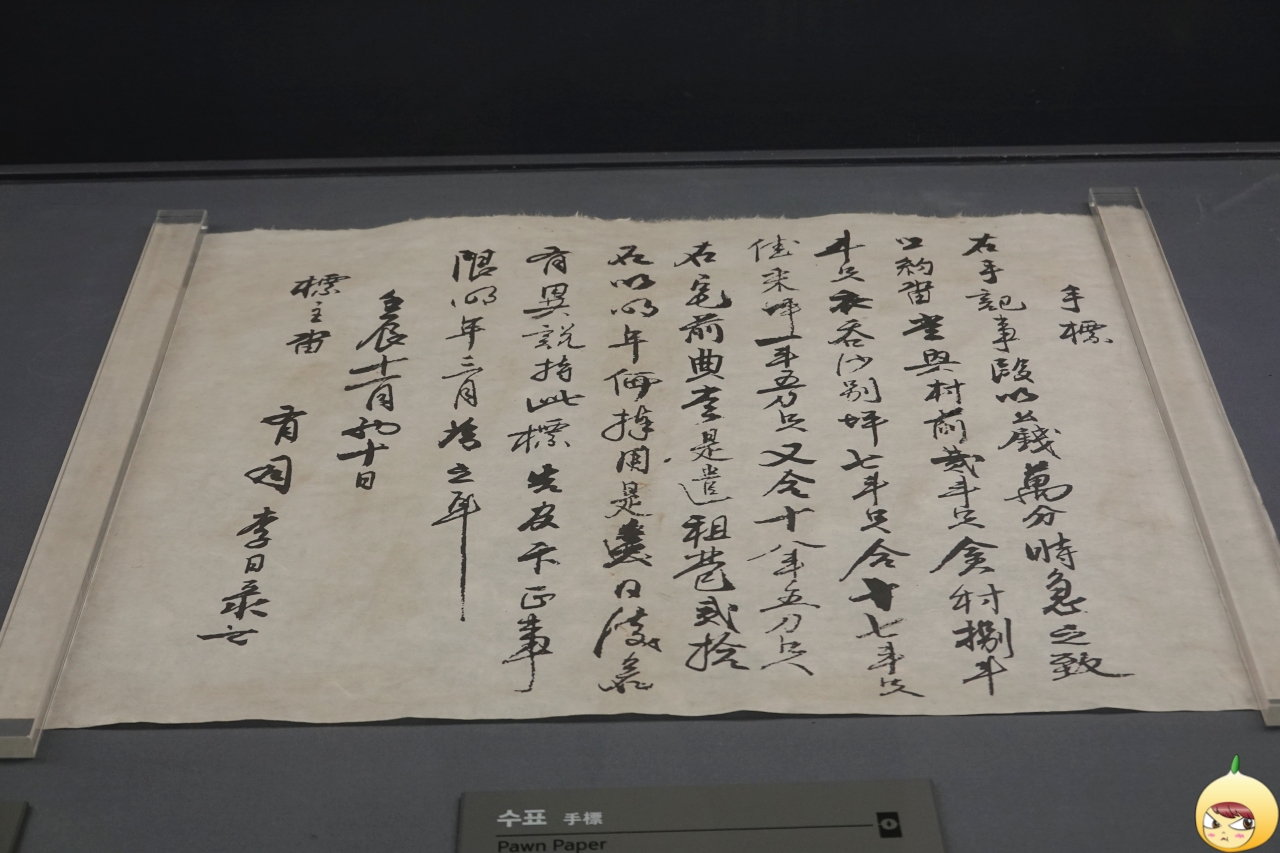 手標
右手記事段以公錢萬分時急之致
口約畓庫與村前貳斗只僉村捌斗
斗只衣谷沙別坪七斗只合十七斗只
佳來坪一斗五刀只又合十八斗五刀只
右宅前典李是遣租 貳拾
石以明年 捧用是 日後
有異說持此標告官卞正事
限明年三月 之印
壬辰十二月初十日
標主畓
有司 李日
수표 手標
Pawn Paper